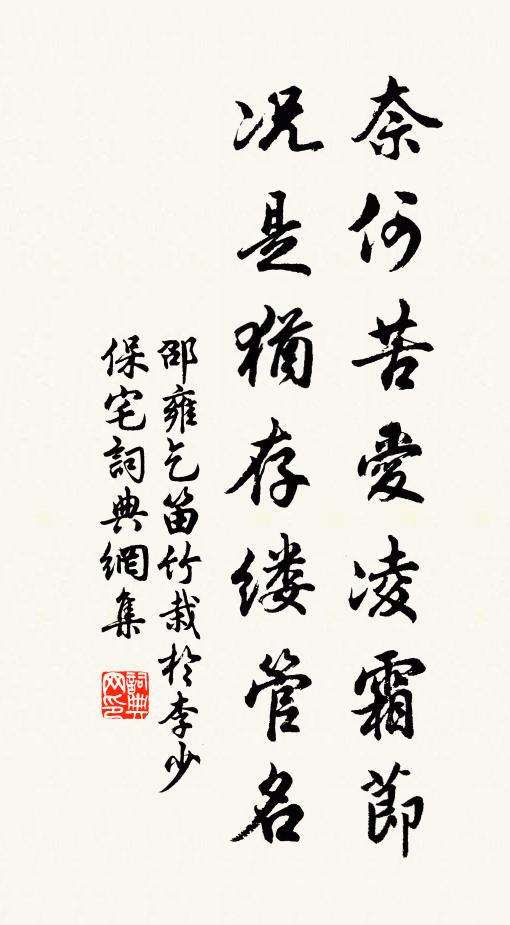 奈何苦愛凌霜節
况是猶存缕管名
邵雍乞笛竹栽於李少
保宅詞典網集
詞典
网印